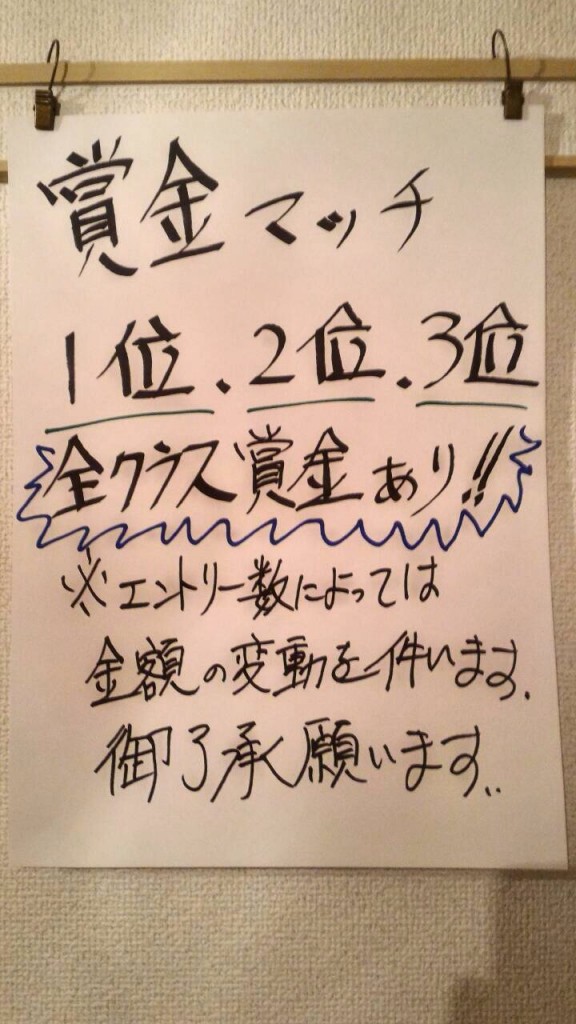 賞金マッチ
1位.2位.3位
全クラス賞金あり!!
※エントリー数によっては
金額の変動を件います.
御了承願います..